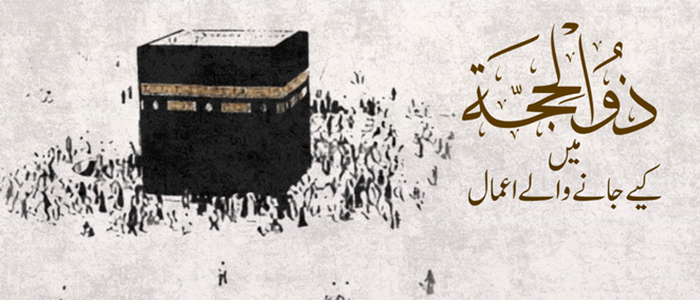 ذُوالحجَّۃ
میں
کیے جانے والے اعمال